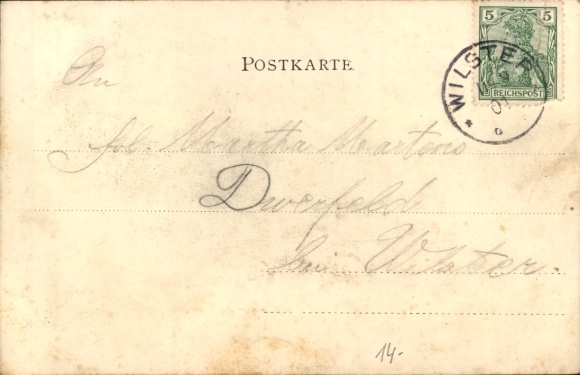 5 5
REICHSPOST
WILSTER
01
POSTKARTE
An
Martha Martens
Duerfeld
bei Wilster.
14-